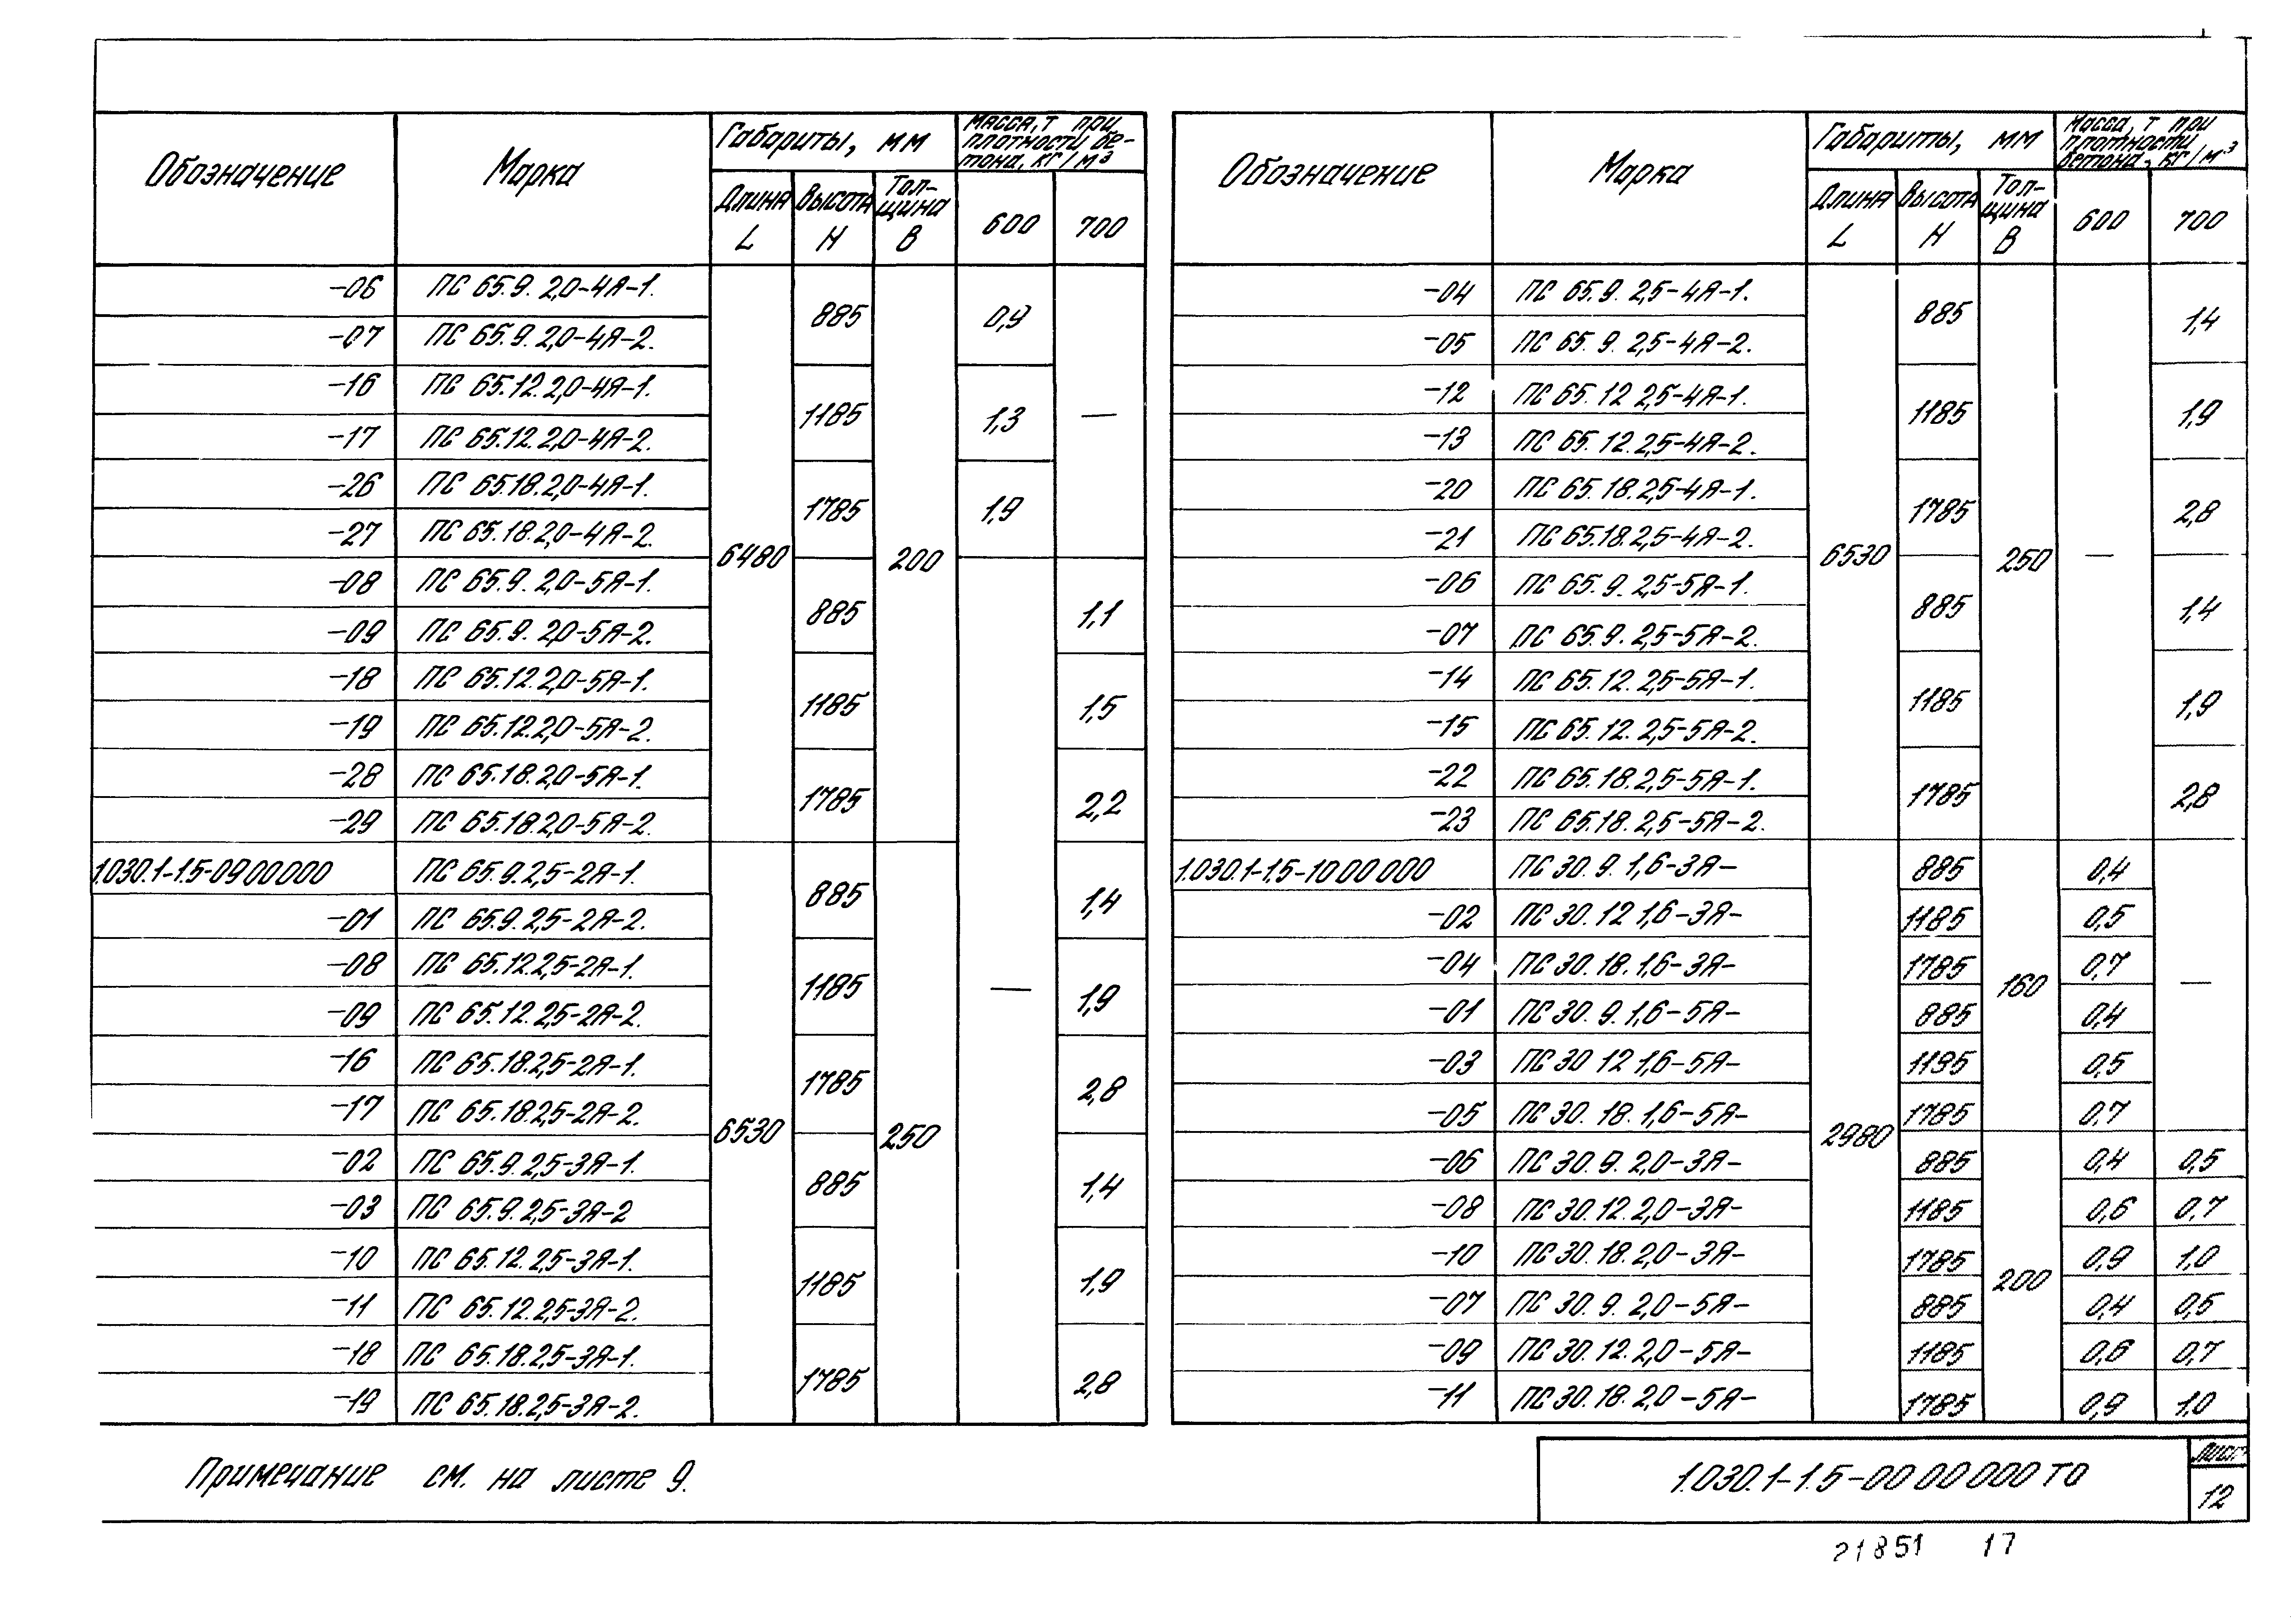 Обозначение Марка Габариты, мм Масса, т при плотности бе-тона, кг/м³
Длина L Высота H Тол-щина B 600 700
-06 ПС 65.9. 2,0-4Я-1. 6480 885 200 0,9 —
-07 ПС 65.9. 2,0-4Я-2.
-16 ПС 65.12. 2,0-4Я-1. 1185 1,3
-17 ПС 65.12. 2,0-4Я-2.
-26 ПС 65.18. 2,0-4Я-1. 1785 1,9
-27 ПС 65.18. 2,0-4Я-2.
-08 ПС 65.9. 2,0-5Я-1. 885 — 1,1
-09 ПС 65.9. 2,0-5Я-2.
-18 ПС 65.12. 2,0-5Я-1. 1185 1,5
-19 ПС 65.12.2,0-5Я-2.
-28 ПС 65.18. 2,0-5Я-1. 1785 2,2
-29 ПС 65.18.2,0-5Я-2.
1.030.1-1.5-0900000 ПС 65.9. 2,5-2Я-1. 6530 885 250 1,4
-01 ПС 65.9. 2,5-2Я-2.
-08 ПС 65.12.2,5-2Я-1. 1185 1,9
-09 ПС 65.12. 2,5-2Я-2.
-16 ПС 65.18.2,5-2Я-1. 1785 2,8
-17 ПС 65.18.2,5-2Я-2.
-02 ПС 65.9. 2,5-3Я-1. 885 1,4
-03 ПС 65.9. 2,5-3Я-2
-10 ПС 65.12. 2,5-3Я-1. 1185 1,9
-11 ПС 65.12. 2,5-3Я-2.
-18 ПС 65.18.2,5-3Я-1. 1785 2,8
-19 ПС 65.18.2,5-3Я-2.
Обозначение Марка Габариты, мм Масса, т при плотности бетона, кг/м³
Длина L Высота H Тол-щина B 600 700
-04 ПС 65.9. 2,5-4Я-1. 6530 885 250 — 1,4
-05 ПС 65. 9. 2,5-4Я-2.
-12 ПС 65. 12 2,5-4Я-1. 1185 1,9
-13 ПС 65. 12. 2,5-4Я-2.
-20 ПС 65.18. 2,5-4Я-1. 1785 2,8
-21 ПС 65.18. 2,5-4Я-2.
-06 ПС 65. 9. 2,5-5Я-1. 885 1,4
-07 ПС 65.9. 2,5-5Я-2.
-14 ПС 65.12. 2,5-5Я-1. 1185 1,9
-15 ПС 65.12. 2,5-5Я-2.
-22 ПС 65.18. 2,5-5Я-1. 1785 2,8
-23 ПС 65.18. 2,5-5Я-2.
1.030.1-1.5-1000000 ПС 30. 9. 1,6-3Я- 2980 885 160 0,4 —
-02 ПС 30. 12 1,6-3Я- 1185 0,5
-04 ПС 30. 18. 1,6-3Я- 1785 0,7
-01 ПС 30. 9. 1,6-5Я- 885 0,4
-03 ПС 30 12 1,6-5Я- 1195 0,5
-05 ПС 30. 18. 1,6-5Я- 1785 0,7
-06 ПС 30. 9. 2,0-3Я- 885 200 0,4 0,5
-08 ПС 30. 12. 2,0-3Я- 1185 0,6 0,7
-10 ПС 30. 18. 2,0-3Я- 1785 0,9 1,0
-07 ПС 30. 9. 2,0-5Я- 885 0,4 0,5
-09 ПС 30. 12. 2,0-5Я- 1185 0,6 0,7
-11 ПС 30. 18. 2,0-5Я- 1785 0,9 1,0
Примечание см. на листе 9.
1.030.1-1.5-0000000 ТО
Лист
12
21851 17